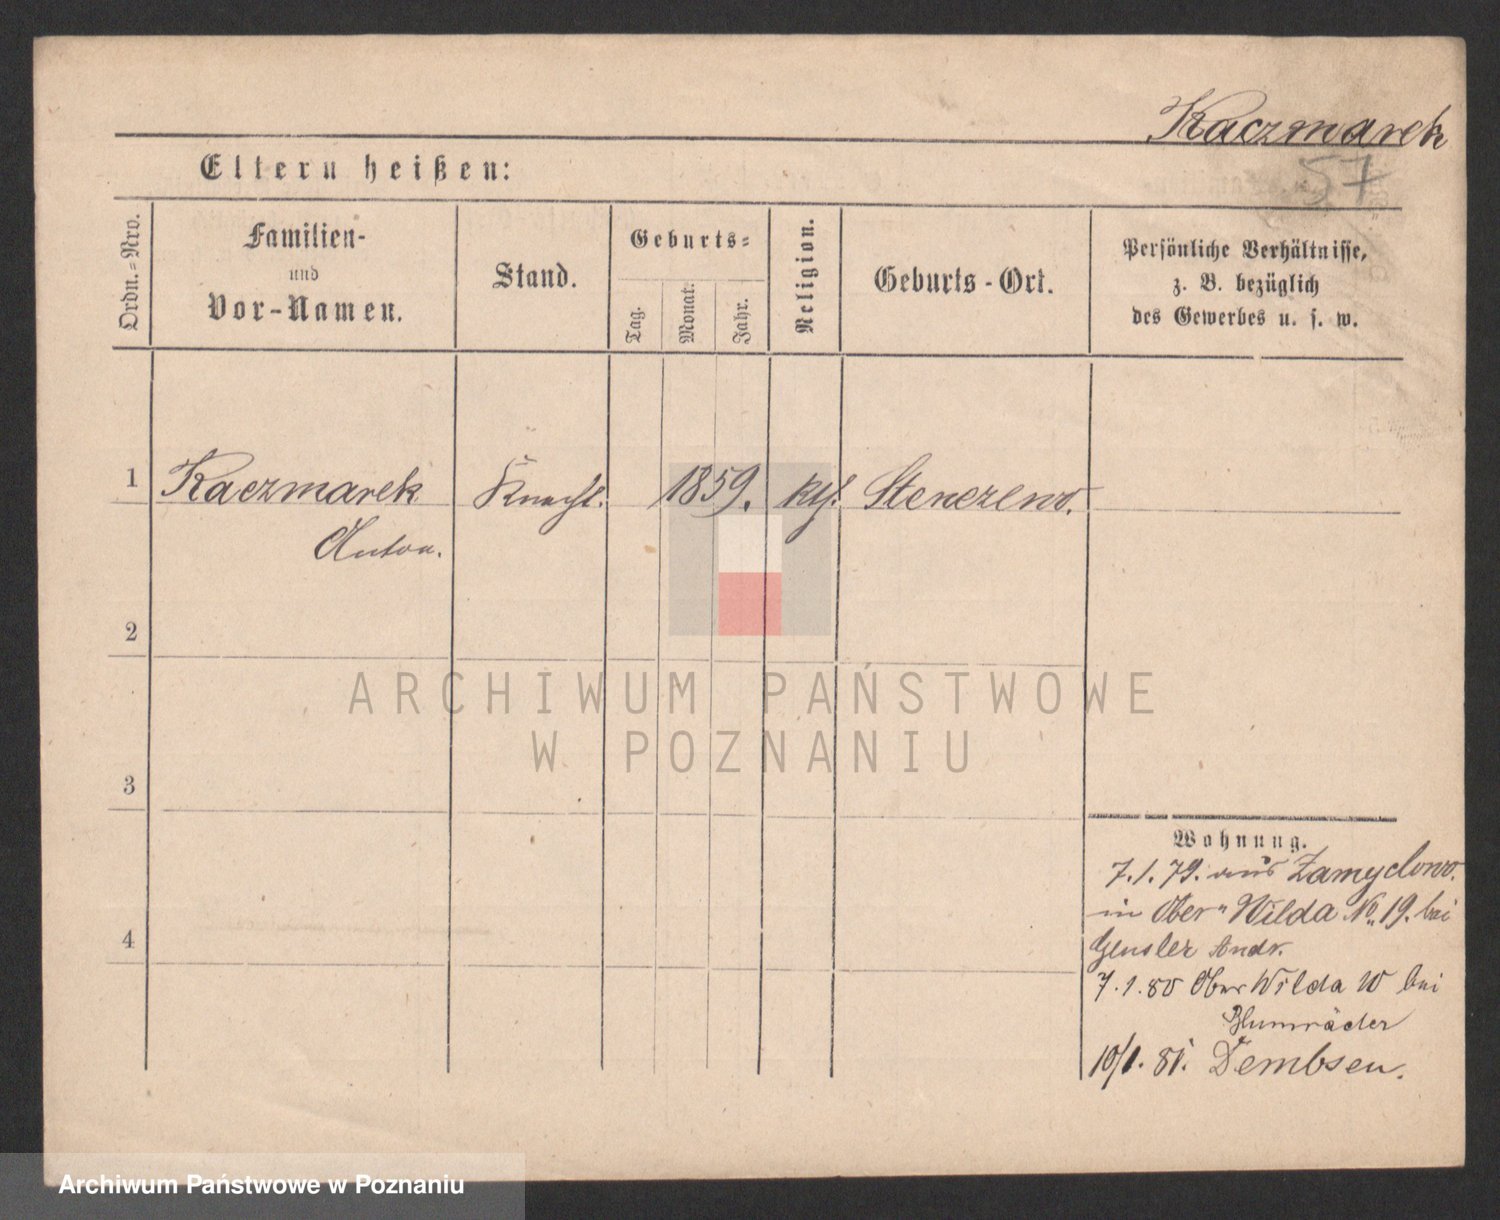 Kaczmarek
57
Eltern heißen:
Ordn.-Nro.
Familien-
und
Vor-Namen.
Stand.
Geburts-
Tag.
Monat.
Jahr.
Religion.
Geburts-Ort.
Persönliche Verhältnisse,
z. B. bezüglich
des Gewerbes u. s. w.
1
Kaczmarek Knecht. 1859. kth. Stenczewo.
Anton.
2
3
4
ARCHIWUM PAŃSTWOWE
W POZNANIU
Wohnung.
7.1.79. aus Zamyslowo.
in Ober-Wilda No 19. bei
Gensler Andr.
7.1.80 Ober Wilda 10 bei
Blumräder
10/1. 81. Dembsen.
Archiwum Państwowe w Poznaniu